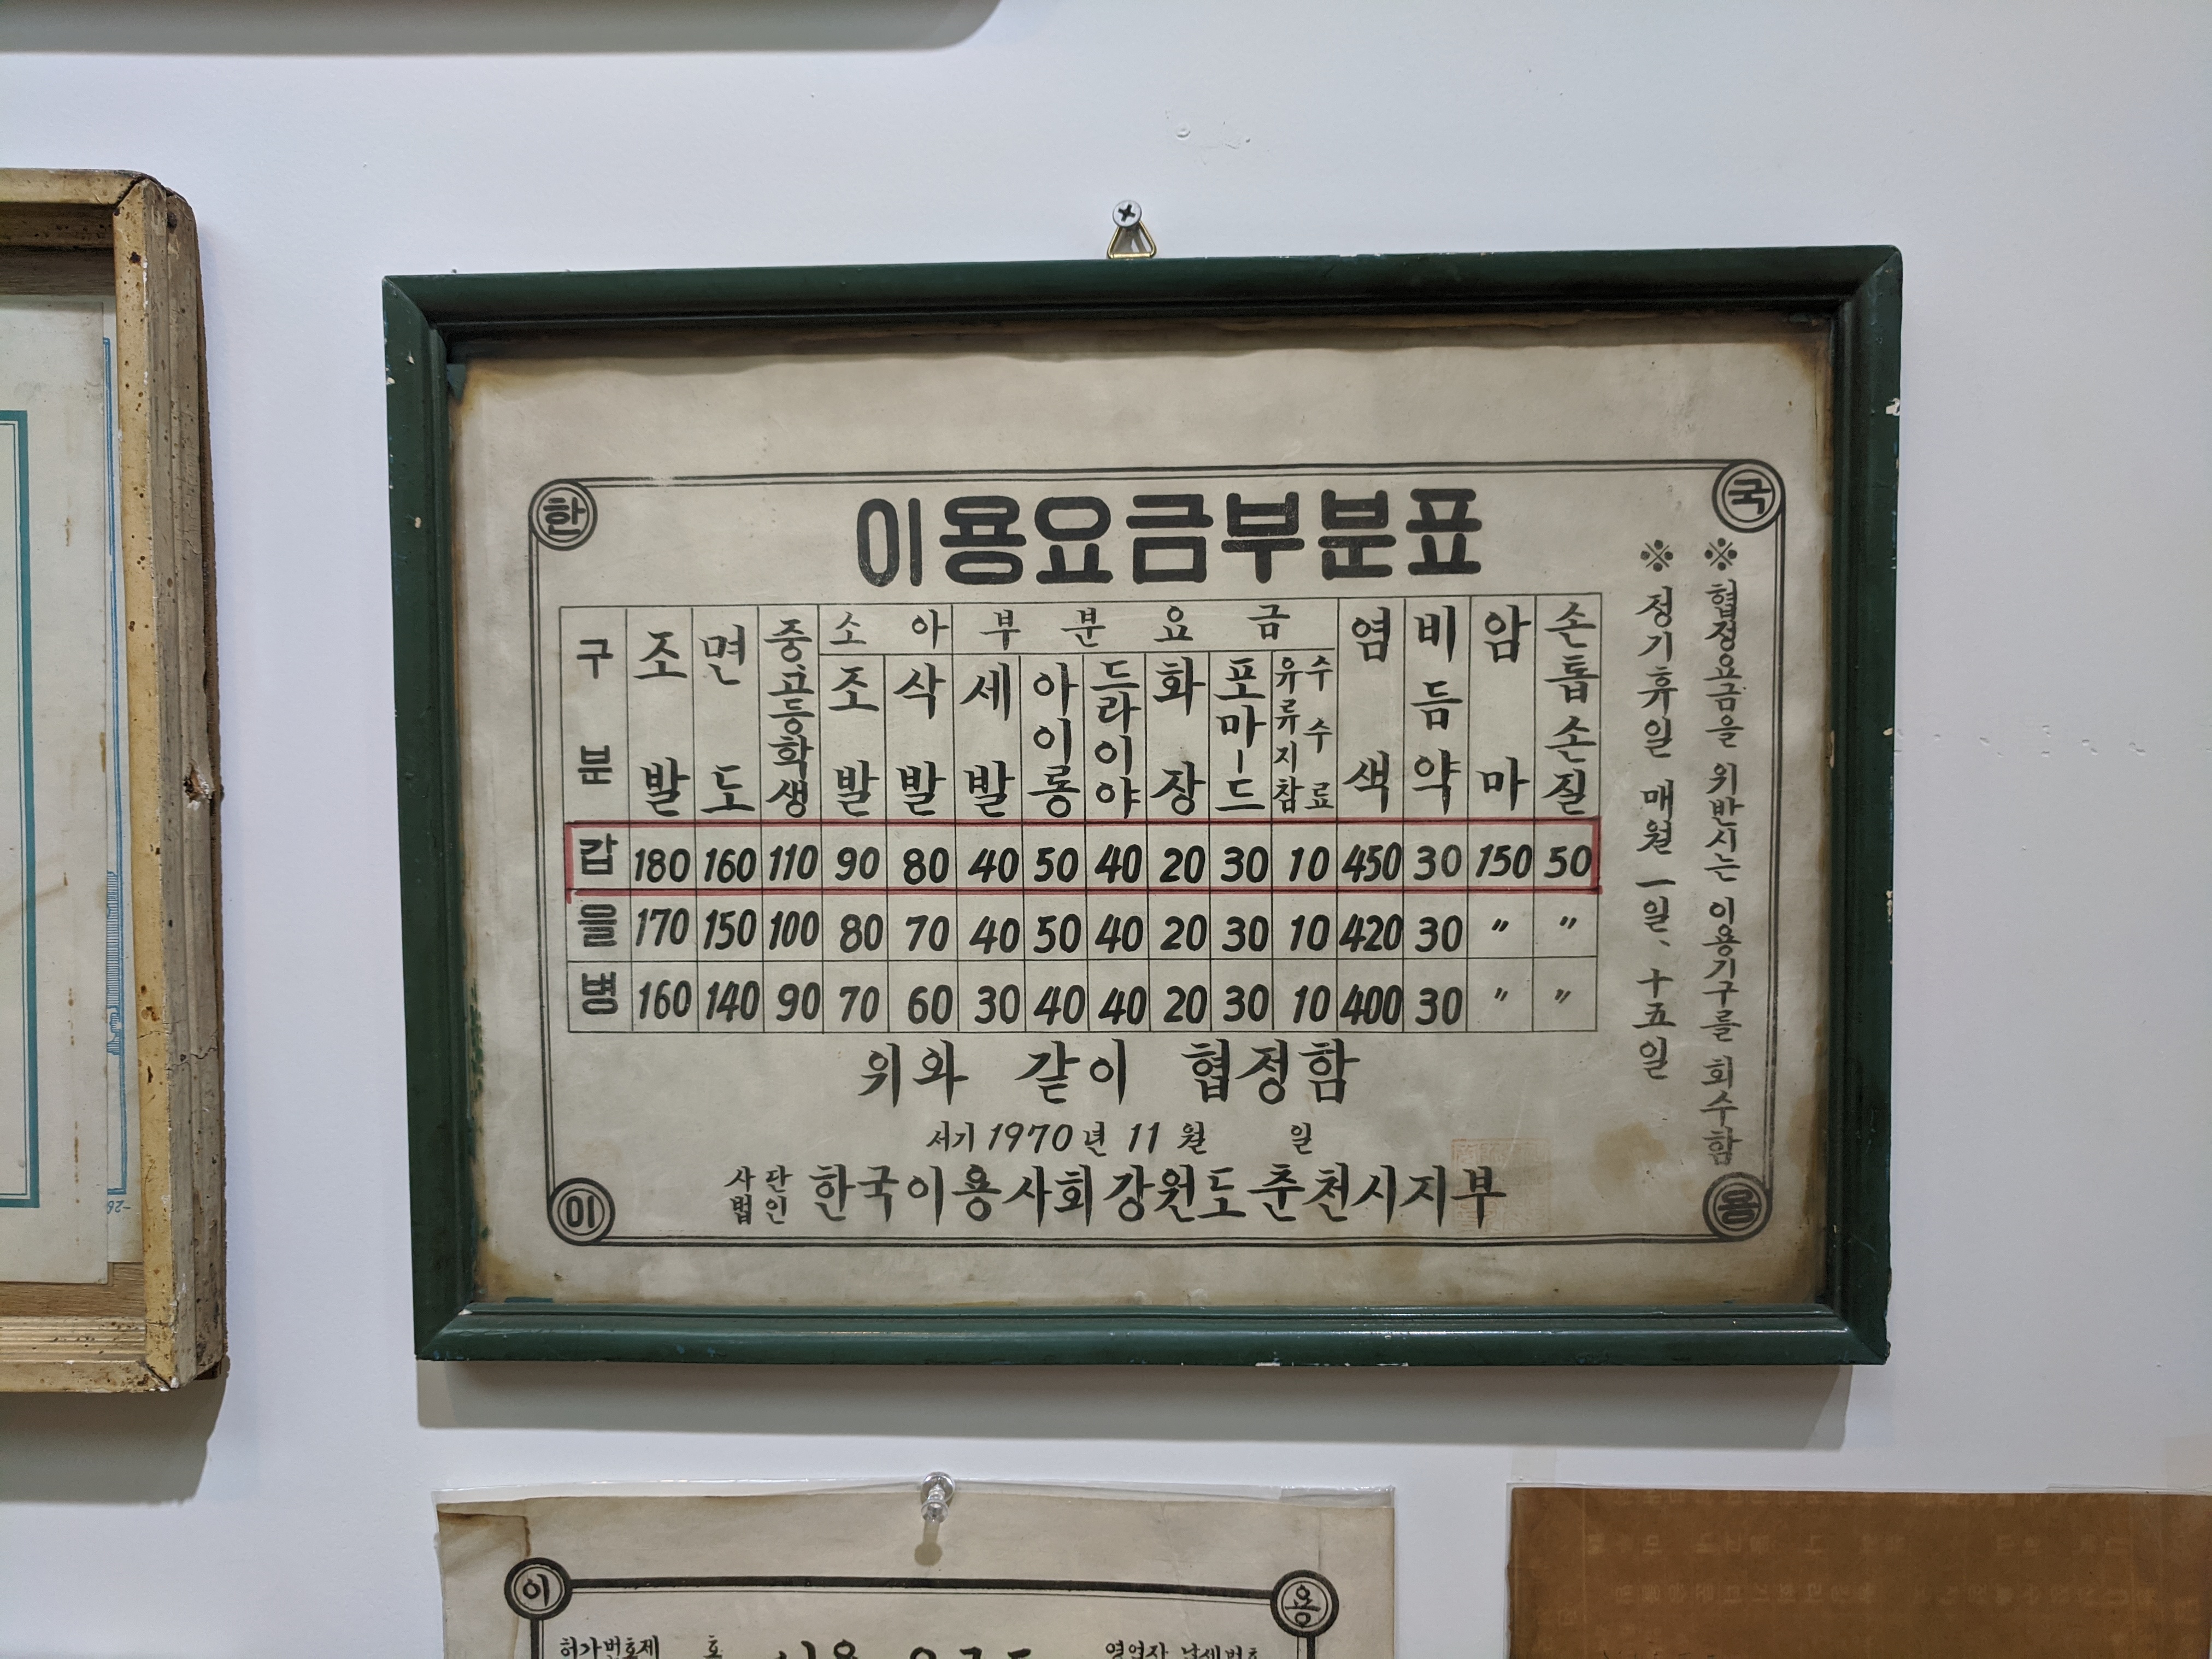 한 국
이용요금부분표
구분 조발 면도 중.고등학생 소아 부분요금 염색 비듬약 암마 손톱손질
조발 삭발 세발 아이롱 드라이야 화장 포마-드 유류지참 수수료
갑 180 160 110 90 80 40 50 40 20 30 10 450 30 150 50
을 170 150 100 80 70 40 50 40 20 30 10 420 30 〃 〃
병 160 140 90 70 60 30 40 40 20 30 10 400 30 〃 〃
위와 같이 협정함
서기 1970년 11월 일
사단법인 한국이용사회강원도춘천시지부
※ 협정요금을 위반시는 이용기구를 회수함
※ 정기휴일 매월 一일、十五일
이 용
이 용
허가번호제 호
영업자 납세번호